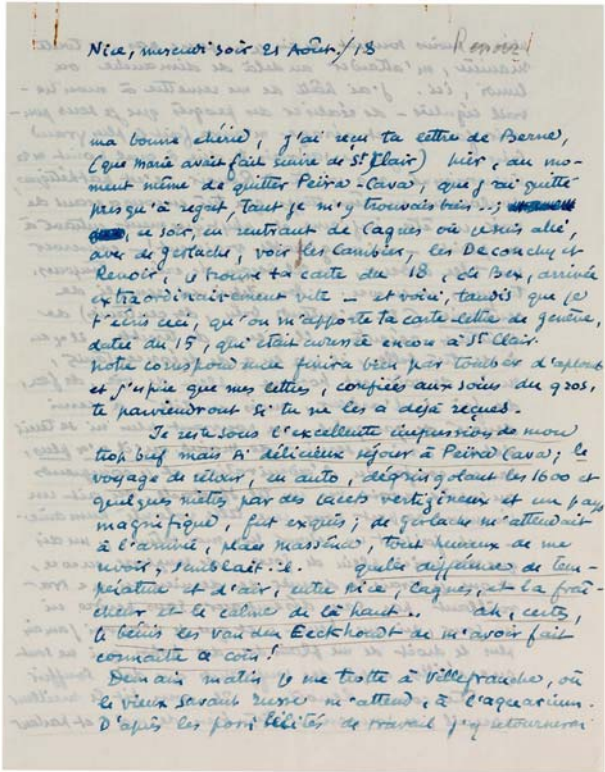 Nice, mercredi soir 21 Août./18
Renoir
ma bonne chérie, j'ai reçu ta lettre de Berne,
(que Marie avait fait suivre de St Clair) hier, au mo-
ment même de quitter Peïra-Cava, que j'ai quitté
presqu'à regret, tant je m'y trouvais bien..;
ce soir, en rentrant de Cagnes où je suis allé,
avec de Gerlache, voir les Cambier, les Deconchy et
Renoir, je trouve ta carte du 18, de Bex, arrivée
extraordinairement vite — et voici, tandis que je
t'écris ceci, qu'on m'apporte ta carte-lettre de Genève,
datée du 15, qui était adressée encore à St Clair.
Notre correspondance finira bien par tomber d'aplomb
et j'espère que mes lettres, confiées aux soins du gros,
te parviendront si tu ne les a déjà reçues.
Je reste sous l'excellente impression de mon
trop bref mais si délicieux séjour à Peïra Cava; le
voyage de retour, en auto, dégringolant les 1600 et
quelques mètres par des lacets vertigineux et un pays
magnifique, fut exquis; de Gerlache m'attendait
à l'arrivée, place Masséna, tout heureux de me
revoir, semblait-il. quelle différence de tem-
pérature et d'air, entre Nice, Cagnes, et la fraî-
cheur et le calme de là haut.. ah, certes,
je bénis les Van den Eeckhoudt de m'avoir fait
connaître ce coin!
Demain matin je me trotte à Villefranche, où
le vieux savant russe m'attend, à l'aquarium.
D'après les possibilités de travail j'y retournerai